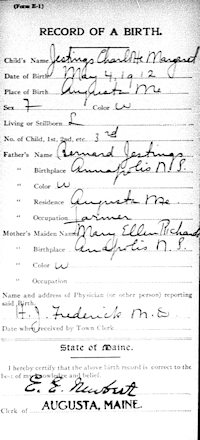 (Form E-1)
RECORD OF A BIRTH.
Child's Name Jestings Charlotte Margaret
Date of Birth May 4, 1912
Place of Birth Augusta Me
Sex F Color W
Living or Stillborn L
No. of Child, 1st, 2nd, etc. 3rd
Father's Name Bernard Jestings
" Birthplace Annapolis N.S.
" Color W
" Residence Augusta Me
" Occupation Farmer
Mother's Maiden Name Mary Ellen Richards
" Birthplace Anapolis N.S.
" Color W
" Occupation
Name and address of Physician (or other person) reporting
said Birth.
H. J. Frederick M.D.
Date when received by Town Clerk
State of Maine.
I hereby certify that the above birth record is correct to the
best of my knowledge and belief.
E. E. Newbert
Clerk of AUGUSTA, MAINE.